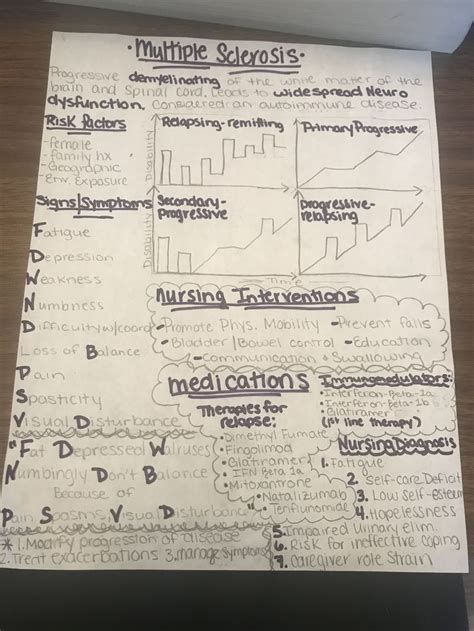 • Multiple Sclerosis •
Progressive demyelinating of the white matter of the
brain and spinal cord. Leads to widespread Neuro
dysfunction. Considered an autoimmune disease.
Risk Factors
- Female
- Family hx
- Geographic
- Env. Exposure
Relapsing-remitting
Disability
Primary Progressive
Secondary-
Progressive
Disability
Progressive-
relapsing
Time
Signs/Symptoms
Fatigue
Depression
Weakness
Numbness
Difficulty w/coord
Loss of Balance
Pain
Spasticity
Visual Disturbance
"Fat Depressed Walruses
Numbingly Don't Balance
Because of
Pain Spasms Visual Disturbance"
* 1. Modify progression of disease
2. Treat exacerbations 3. manage symptoms
Nursing Interventions
• Promote Phys. Mobility • Prevent falls
• Bladder/Bowel control • Education
• Communication + Swallowing
Medications
Therapies for
relapse:
• Dimethyl Fumate
• Fingolimod
• Glatiramer
• IFN Beta 1a
• Mitoxantrone
• Natalizumab
• Teriflunomide
Immunomodulators:
• Interferon-Beta-1a
• Interferon-Beta-1b
• Glatiramer
(1st line therapy)
Nursing Diagnosis
1. Fatigue
2. Self-care Deficit
3. Low self-esteem
4. Hopelessness
5. Impaired urinary elim.
6. Risk for ineffective coping
7. Caregiver role strain